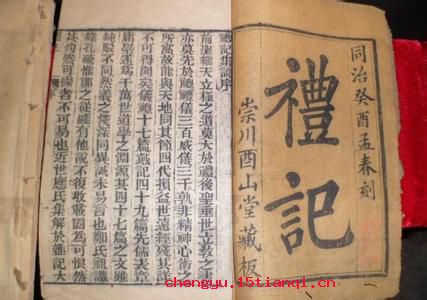 同治癸酉孟春刻
禮記
崇川酉山堂藏板
禮記集說序
前聖繼天立極之道莫大於禮後聖垂世立教之書
亦莫先於禮禮儀三百威儀三千孰非精神心術之
所寓故能與天地同其節四代損益世遠經殘其詳
不可得聞矣儀禮十七篇戴記四十九篇先儒表章
庸學遂爲千萬世道學之淵源其四十七篇之文雖
純駁不同然義之淺深同異誠未易言也鄭氏祖讖
緯孔疏惟鄭之從雖有他說不復收載固爲可恨然
其灼然可據者不可易也近世應氏集解於雜記大
chengyu.15tianqi.cn